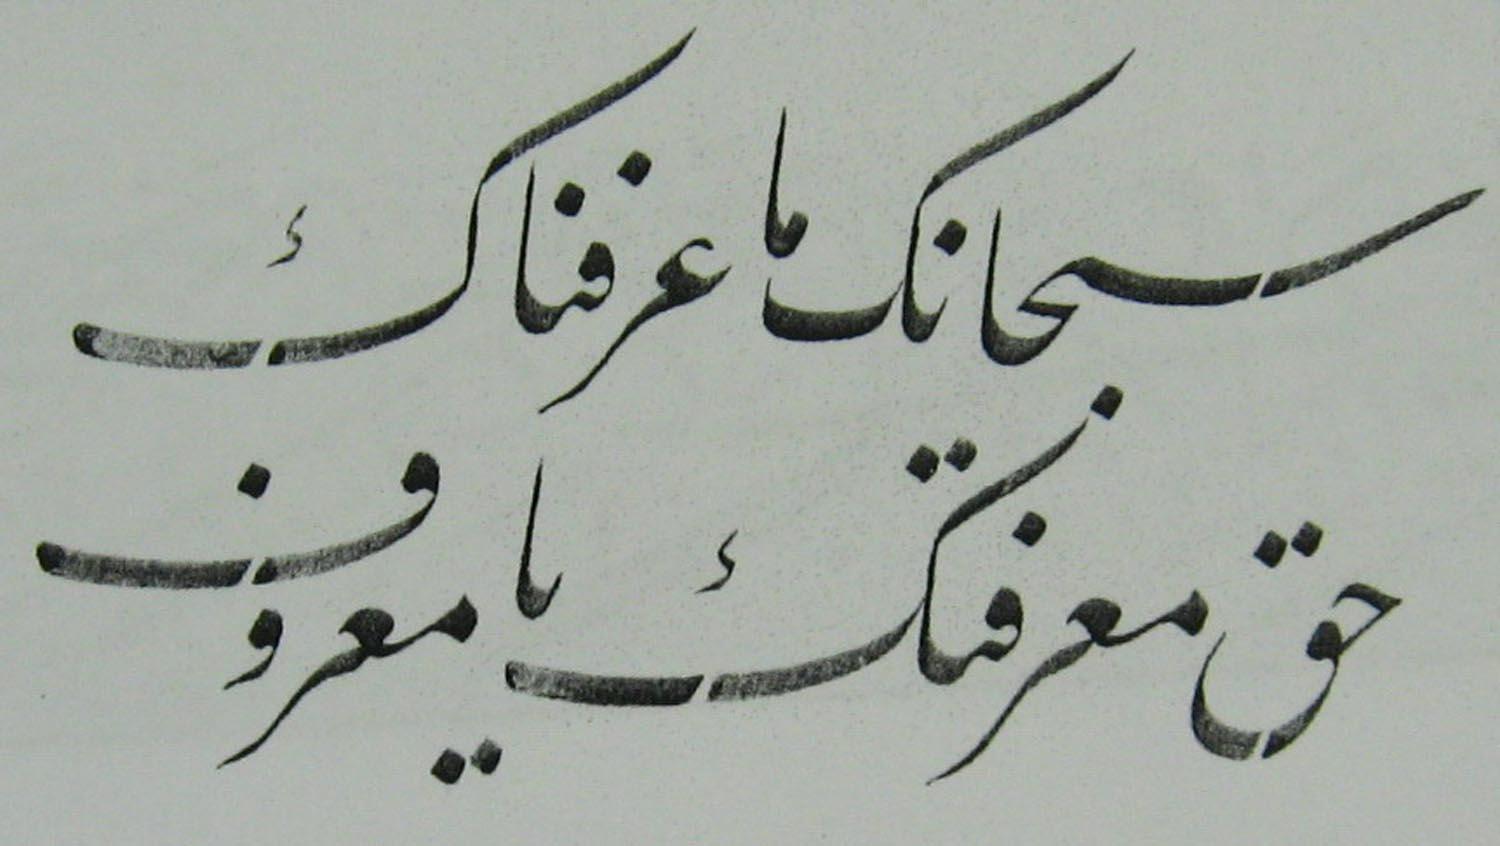 سبحانک ما عرفناک
حق معرفتک یا معروف